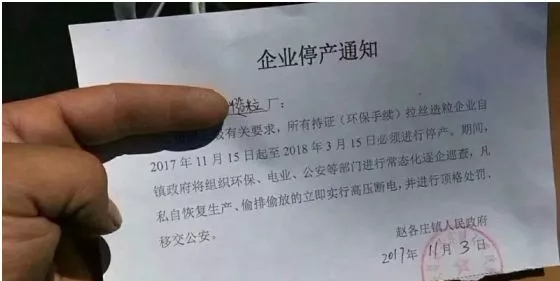 企业停产通知
造粒厂：
级有关要求，所有持证（环保手续）拉丝造粒企业自
2017年11月15日起至2018年3月15日必须进行停产。期间，
镇政府将组织环保、电业、公安等部门进行常态化逐企巡查，凡
私自恢复生产、偷排偷放的立即实行高压断电，并进行顶格处罚、
移交公安。
赵各庄镇人民政府
2017年11月3日